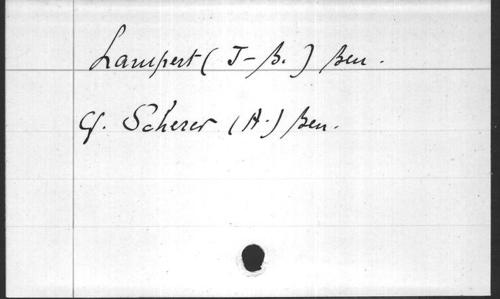 Lampert (J-B.) Ben.
Cf. Scherer (A.) Ben.